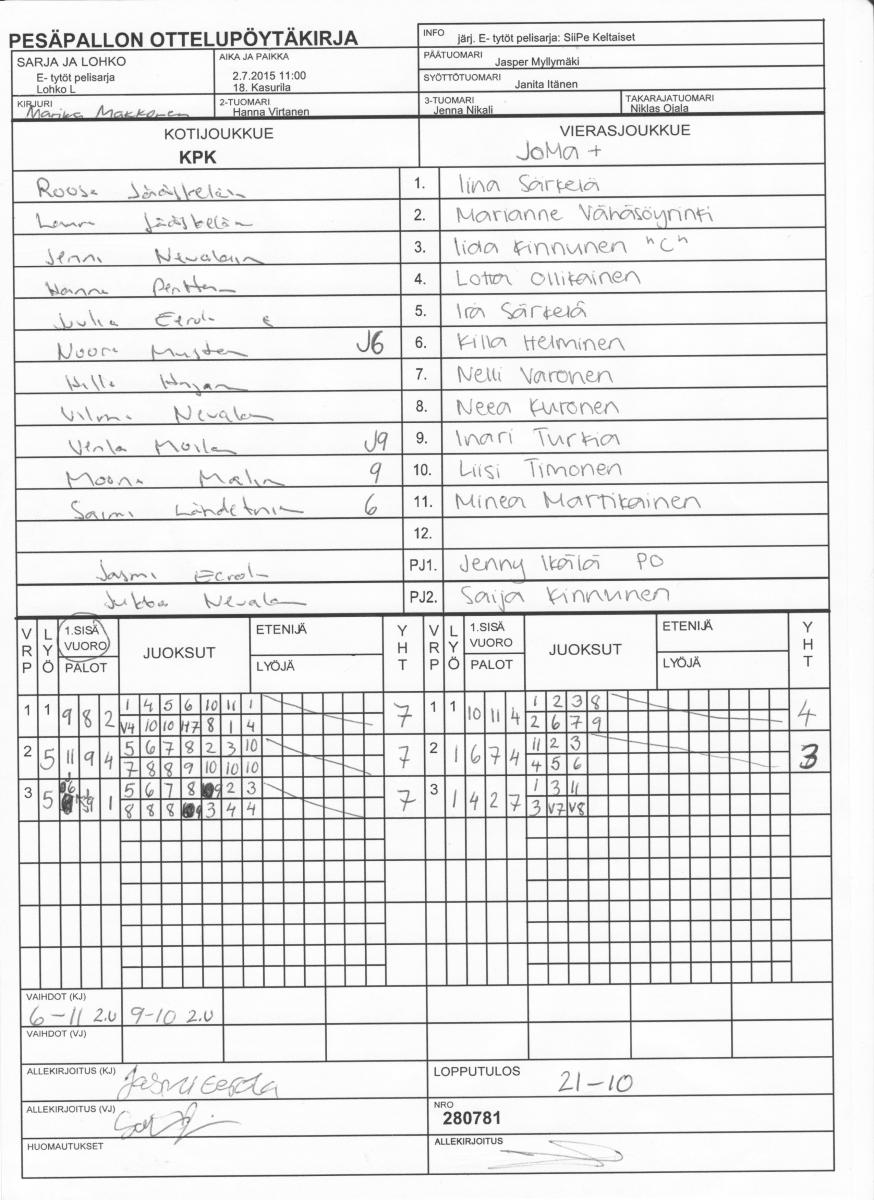 PESÄPALLON OTTELUPÖYTÄKIRJA
INFO järj. E- tytöt pelisarja: SiiPe Keltaiset
SARJA JA LOHKO
E- tytöt pelisarja
Lohko L
AIKA JA PAIKKA
2.7.2015 11:00
18. Kasurila
PÄÄTUOMARI Jasper Myllymäki
SYÖTTÖTUOMARI Janita Itänen
KIRJURI Marika Makkonen
2-TUOMARI Hanna Virtanen
3-TUOMARI Jenna Nikali
TAKARAJATUOMARI Niklas Ojala
KOTIJOUKKUE
KPK
VIERASJOUKKUE
JoMa +
Roosa 1. Iina Särkelä
Laura 2. Marianne Vähäsöyrinki
Jenni 3. Iida Kinnunen "C"
Hanna 4. Lotta Ollikainen
Julia Eerola 5. Ira Särkelä
Noora J6 6. Killa Helminen
Hilla 7. Nelli Varonen
Vilma 8. Neea Kuronen
Venla J9 9. Inari Turkia
Moona 9 10. Liisi Timonen
Saimi 6 11. Minea Martikainen
12.
Jasmi PJ1. Jenny Ikälä PO
Jukka PJ2. Saija Kinnunen
VRP LYÖ 1.SISÄ VUORO PALOT JUOKSUT ETENIJÄ LYÖJÄ YHT VRP LYÖ 1.SISÄ VUORO PALOT JUOKSUT ETENIJÄ LYÖJÄ YHT
1 1 9 8 2 1 4 5 6 10 11 1 7 1 1 10 11 4 1 2 3 8 4
V4 10 10 H7 8 1 4 2 6 7 9
2 5 11 9 4 5 6 7 8 2 3 10 7 2 1 6 7 4 11 2 3 3
7 8 8 9 10 10 10 4 5 6
3 5 1 5 6 7 8 9 2 3 7 3 1 4 2 7 1 3 11
8 8 8 9 3 4 4 3 V7 V8
VAIHDOT (KJ)
6-11 2.v 9-10 2.v
VAIHDOT (VJ)
ALLEKIRJOITUS (KJ) Jasmi Eerola
LOPPUTULOS 21-10
ALLEKIRJOITUS (VJ)
NRO
280781
HUOMAUTUKSET
ALLEKIRJOITUS